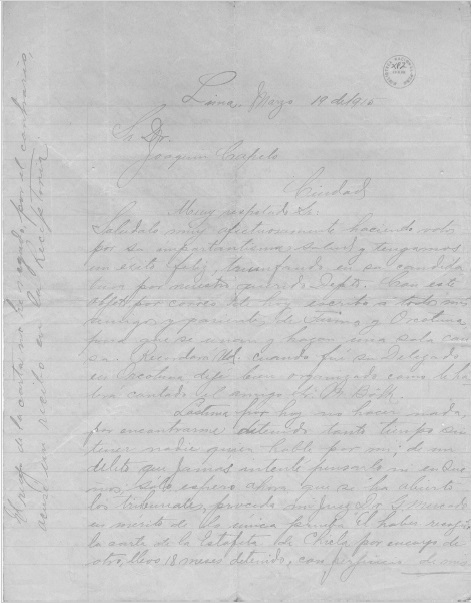 Lima, Marzo 19 de 1915
Sr. Dr.
Joaquin Capelo
Ciudad
Muy respetado Dr.
Saludalo muy afectuosamente haciendo votos
por su importantisima salud, y tengamos
un exito feliz, triunfando en su candida
tura por nuestro querido Depto. Con este
objeto por correo de hoy escribo a todos mis
amigos y parientes de Junin y
para que se unan y hagan una sola cau
sa. Recordara Ud. cuando fui su Delegado
en deje bien organizado como le ha
bra contado el amigo Sr.
Lastima por hoy no hacer nada,
por encontrarme detenido tanto tiempo sin
tener nadie quien hable por mi; de un
delito que jamas intente pensarlo ni en sue
ños, solo espero ahora que se ha abierto
los tribunales, proceda mi Juez Dr. Mercado
en merito de la unica prueba el haber recogi
la carta de la Estafeta de Chicla por encargo de
otro, llevo 18 meses detenido, con perjuicio de mis
de la carta no he negado, por el contrario,
un recibo en la Receptoria.